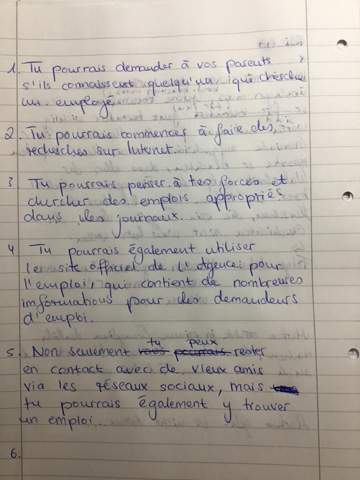 1. Tu pourrais demander à vos parents
s'ils connaissent quelqu'un qui cherche
un employé
2. Tu pourrais commencer à faire des
recherches sur Internet.
3 Tu pourrais penser à tes forces et
chercher des emplois appropriés
dans des journaux.
4 Tu pourrais également utiliser
le site officiel de l'Agence pour
l'emploi, qui contient de nombreuses
informations pour des demandeurs
d'emploi.
5. Non seulement tu peux rester
en contact avec de vieux amis
via les réseaux sociaux, mais
tu pourrais également y trouver
un emploi.
6.